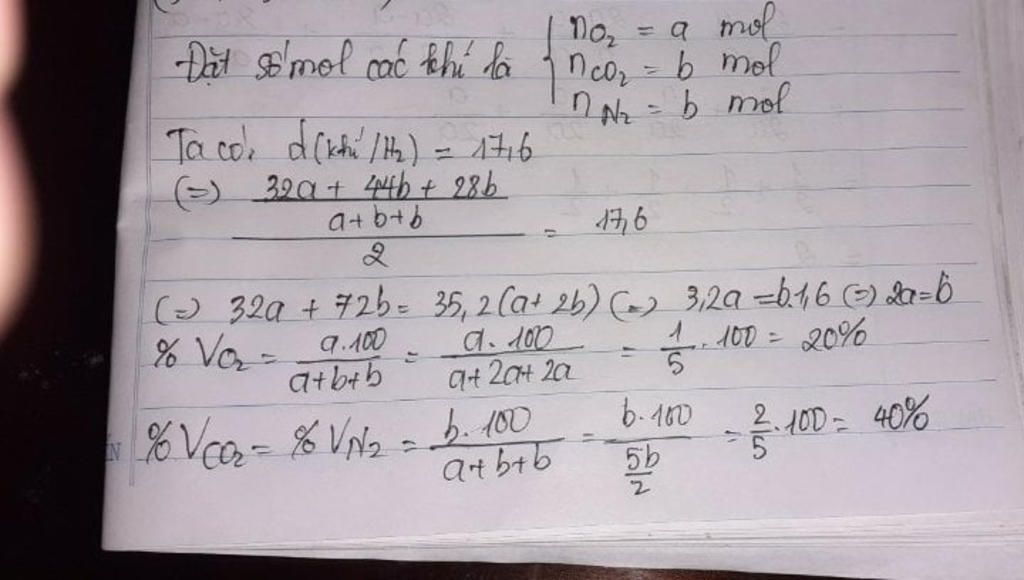 Đặt số mol các khí là { nO₂ = a mol
nCO₂ = b mol
nN₂ = b mol
Ta có, d(khí/H₂) = 17,6
(=) ((32a + 44b + 28b)/(a+b+b))/2 = 17,6
(=) 32a + 72b = 35,2(a+2b) (=) 3,2a = b.1,6 (=) 2a = b
% VO₂ = a.100/(a+b+b) = a.100/(a+2a+2a) = 1/5 . 100 = 20%
% VCO₂ = % VN₂ = b.100/(a+b+b) = b.100/(5b/2) = 2/5 . 100 = 40%